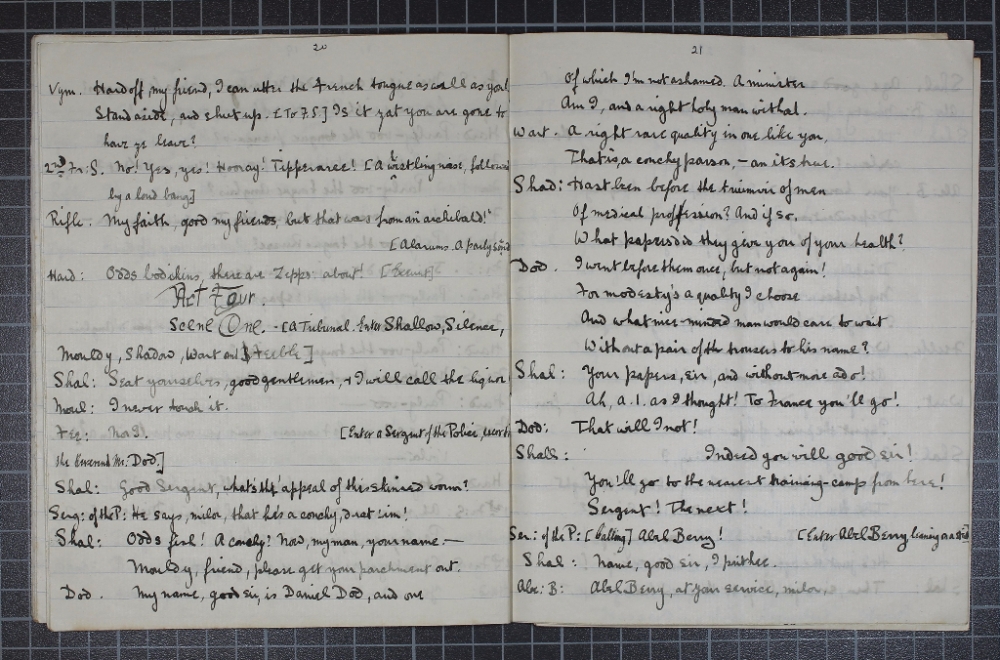 20
Vym. Hand off, my friend, I can utter the French tongue as well as you!
Stand aside, and shut up. [To F.S.] Is it yat you are gone to
have ye leave?
2nd Fr: S. No! Yes, yes! Hooray! Tipperaree! [A whistling noise, followed
by a loud bang]
Rifle. My faith, good my friends, but that was from an archibald!
[Alarums. A parly sound
Hard: Odds bodikins, there are Zepps about! [Exeunt]
Act Four
Scene One. - [A Tribunal. Enter Shallow, Silence,
Mouldy, Shadow, Wart and Feeble]
Shal: Seat yourselves, good gentlemen, & I will call the liquor
Moul: I never touch it.
Fee: Nor I. [Enter a Sergent of the Police,
the Reverend Mr. Dod.]
Shal: Good Sergent, what's the appeal of this skinned worm?
Serg: of the P: He says, milor, that he's a conchy, drat 'im!
Shal: Odds fish! A conchy? Now, my man, your name. —
Mouldy, friend, please get your parchment out.
Dod. My name, good sir, is Daniel Dod, and one
21
Of which I'm not ashamed. A minister
Am I, and a right holy man withal.
Wart. A right rare quality in one like you,
That is, a conchy parson, – an its true.
Shad: Hast been before the triumvir of men
Of medical profession? And if so,
What papers did they give you of your health?
Dod. I went before them once, but not again!
For modesty's a quality I choose
And what nice-minded man would care to wait
Without a pair of the trousers to his name?
Shal: Your papers, sir, and without more ado!
Ah, a. 1. as I thought! To France you'll go!
Dod: That will I not!
Shall: Indeed you will good sir!
You'll go to the nearest training-camp from here!
Sergent! The next!
Ser: of the P: [Calling] Abel Berry! [Enter Abel Berry, leaning on a stick]
Shal: Name, good sir, I prithee.
Abe: B: Abel Berry, at your service, milor,